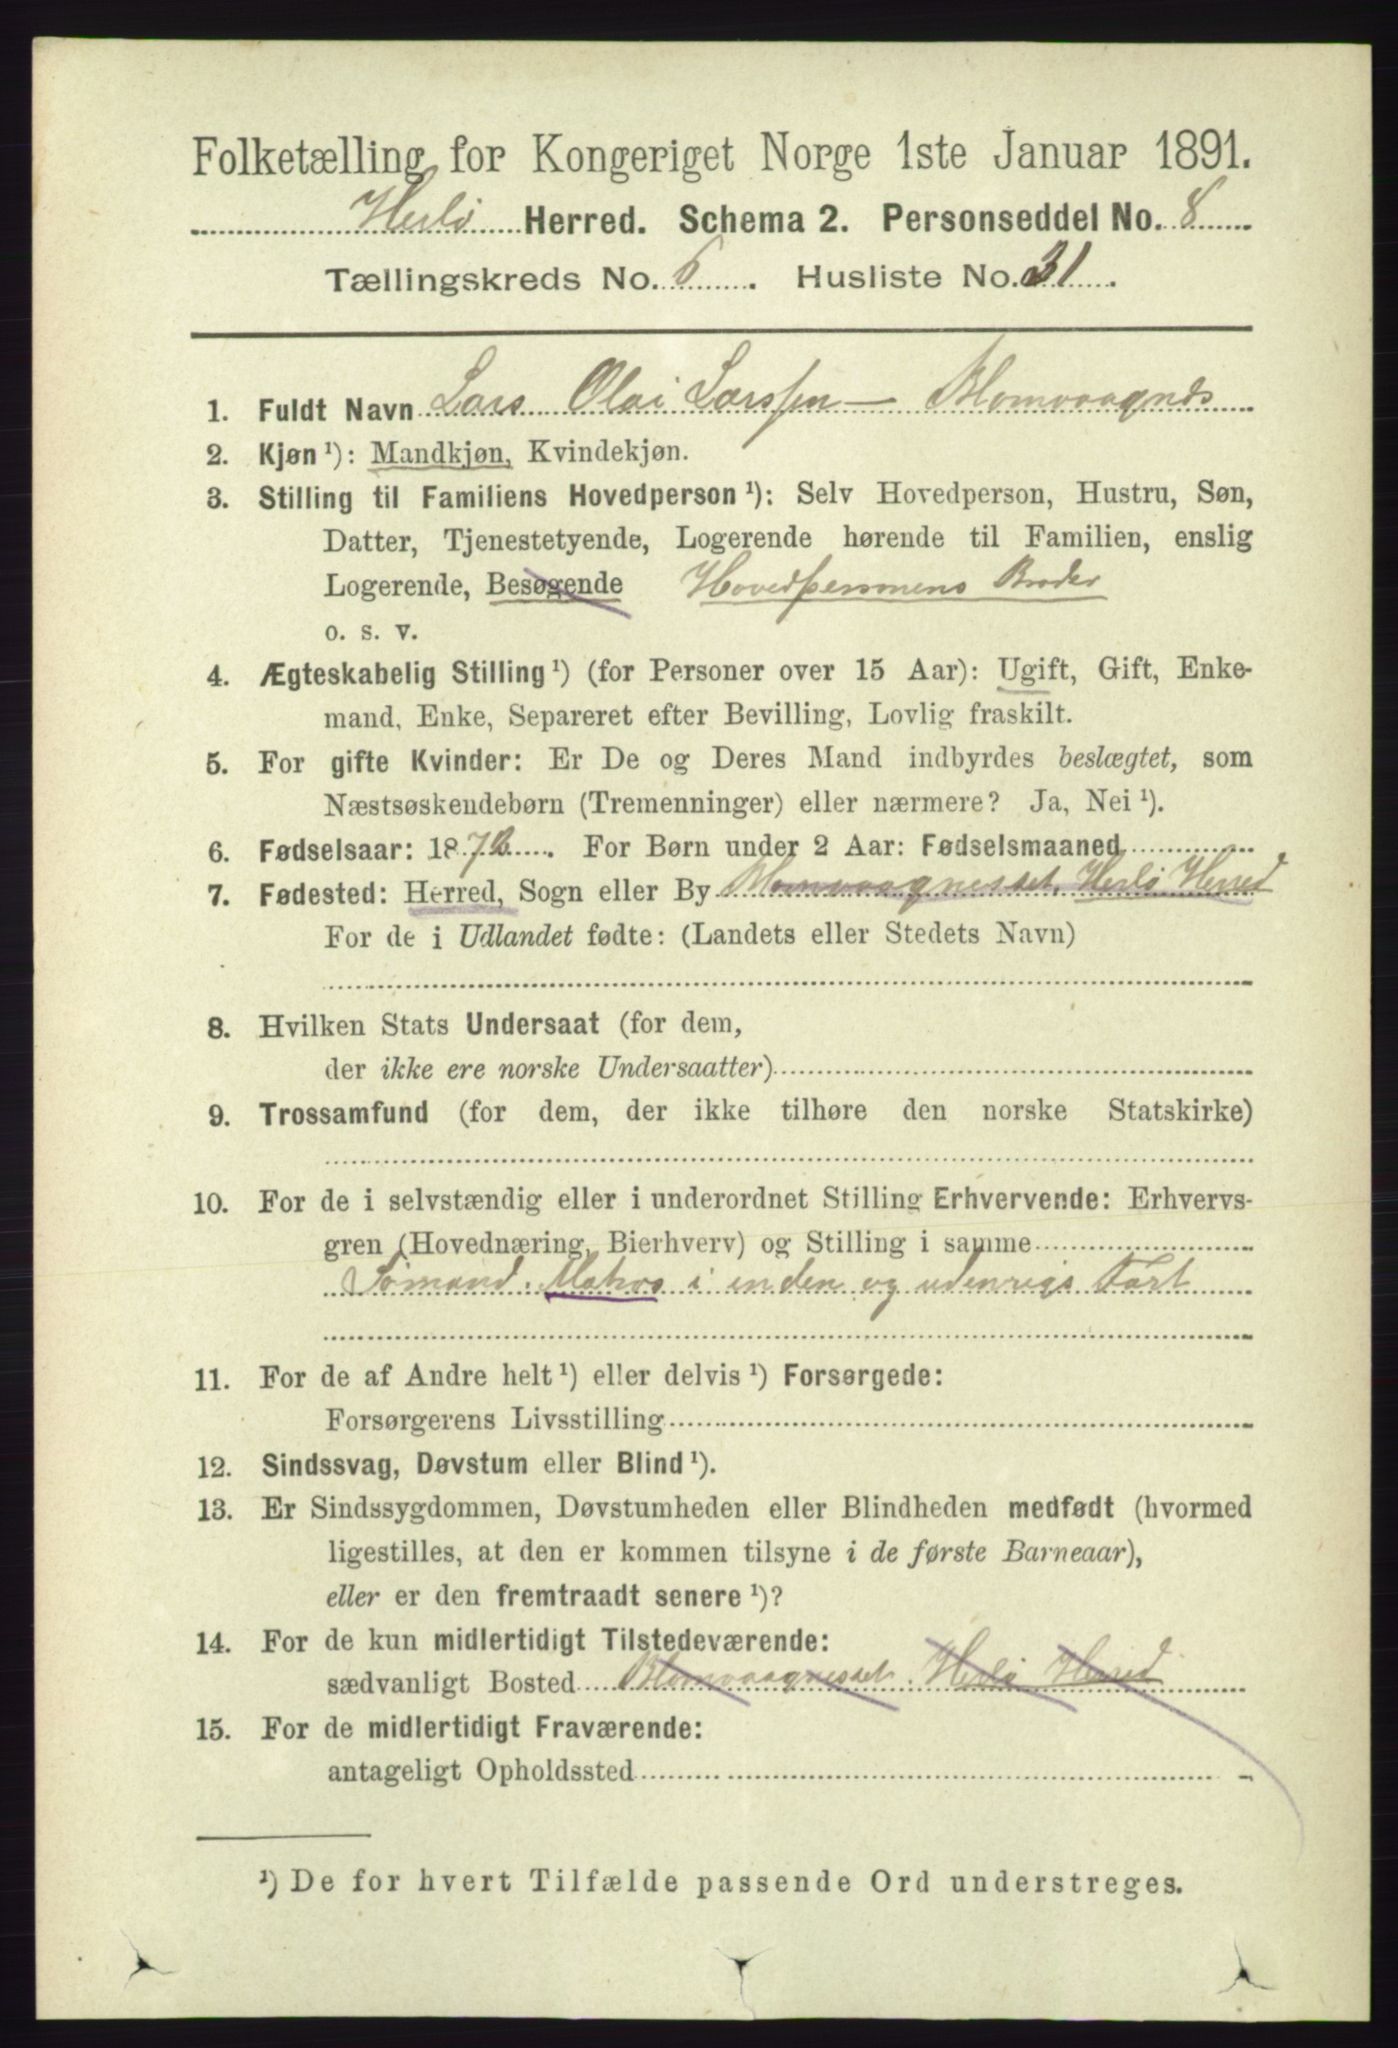 Folketælling for Kongeriget Norge 1ste Januar 1891.
Herlø Herred. Schema 2. Personseddel No. 8
Tællingskreds No. 6. Husliste No. 31.
1. Fuldt Navn Lars Olai Larssen – Blomvaagnes
2. Kjøn ¹): Mandkjøn, Kvindekjøn.
3. Stilling til Familiens Hovedperson ¹): Selv Hovedperson, Hustru, Søn,
Datter, Tjenestetyende, Logerende hørende til Familien, enslig
Logerende, Besøgende Hovedpersonens Broder
o. s. v.
4. Ægteskabelig Stilling ¹) (for Personer over 15 Aar): Ugift, Gift, Enke-
mand, Enke, Separeret efter Bevilling, Lovlig fraskilt.
5. For gifte Kvinder: Er De og Deres Mand indbyrdes beslægtet, som
Næstsøskendebørn (Tremenninger) eller nærmere? Ja, Nei ¹).
6. Fødselsaar: 187. For Børn under 2 Aar: Fødselsmaaned
7. Fødested: Herred, Sogn eller By Blomvaagnesset. Herlø Herred
For de i Udlandet fødte: (Landets eller Stedets Navn)
8. Hvilken Stats Undersaat (for dem,
der ikke ere norske Undersaatter)
9. Trossamfund (for dem, der ikke tilhøre den norske Statskirke)
10. For de i selvstændig eller i underordnet Stilling Erhvervende: Erhvervs-
gren (Hovednæring, Bierhverv) og Stilling i samme
Sømand. Matros i inden og udenrigs Fart
11. For de af Andre helt ¹) eller delvis ¹) Forsørgede:
Forsørgerens Livsstilling
12. Sindssvag, Døvstum eller Blind ¹).
13. Er Sindssygdommen, Døvstumheden eller Blindheden medfødt (hvormed
ligestilles, at den er kommen tilsyne i de første Barneaar),
eller er den fremtraadt senere ¹)?
14. For de kun midlertidigt Tilstedeværende:
sædvanligt Bosted Blomvaagnesset. Herlø Herred
15. For de midlertidigt Fraværende:
antageligt Opholdssted
¹) De for hvert Tilfælde passende Ord understreges.